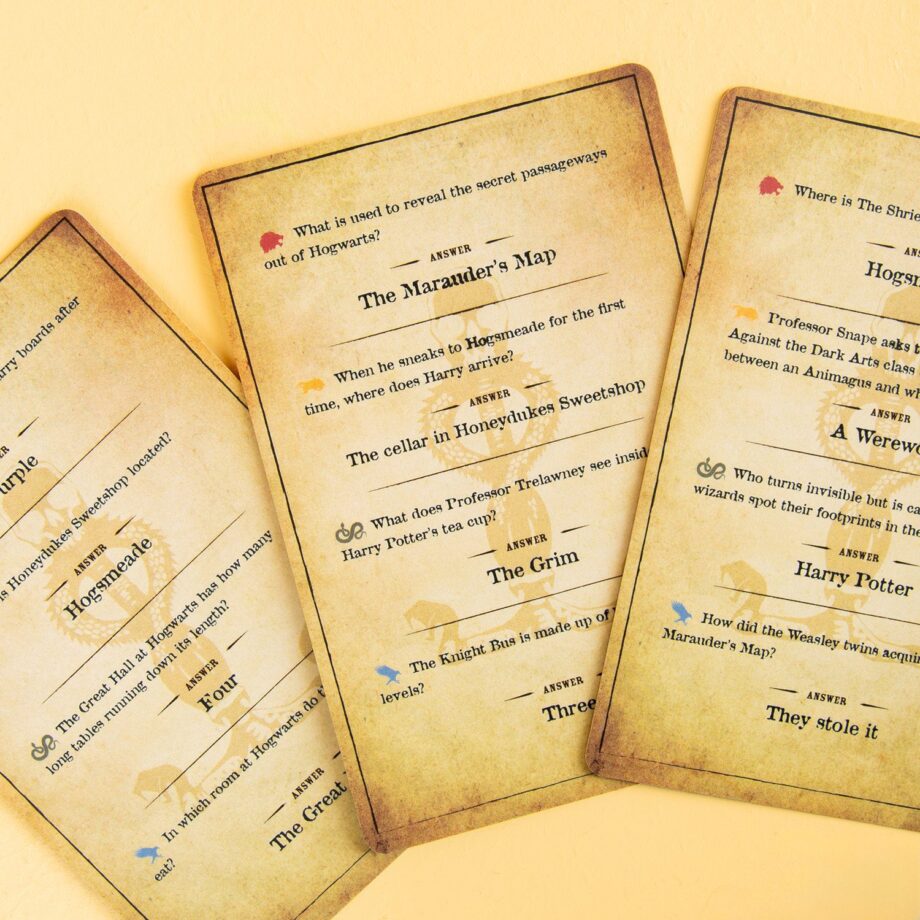 arry boards after
urple
s Honeydukes Sweetshop located?
ANSWER
Hogsmeade
The Great Hall at Hogwarts has how many
long tables running down its length?
ANSWER
Four
In which room at Hogwarts do th
eat?
ANSWER
The Great
What is used to reveal the secret passageways
out of Hogwarts?
ANSWER
The Marauder's Map
When he sneaks to Hogsmeade for the first
time, where does Harry arrive?
ANSWER
The cellar in Honeydukes Sweetshop
What does Professor Trelawney see insid
Harry Potter's tea cup?
ANSWER
The Grim
The Knight Bus is made up of
levels?
ANSWER
Three
Where is The Shrie
ANS
Hogsm
Professor Snape asks t
Against the Dark Arts class
between an Animagus and wh
ANSWER
A Werewo
Who turns invisible but is ca
wizards spot their footprints in the
ANSWER
Harry Potter
How did the Weasley twins acquir
Marauder's Map?
ANSWER
They stole it